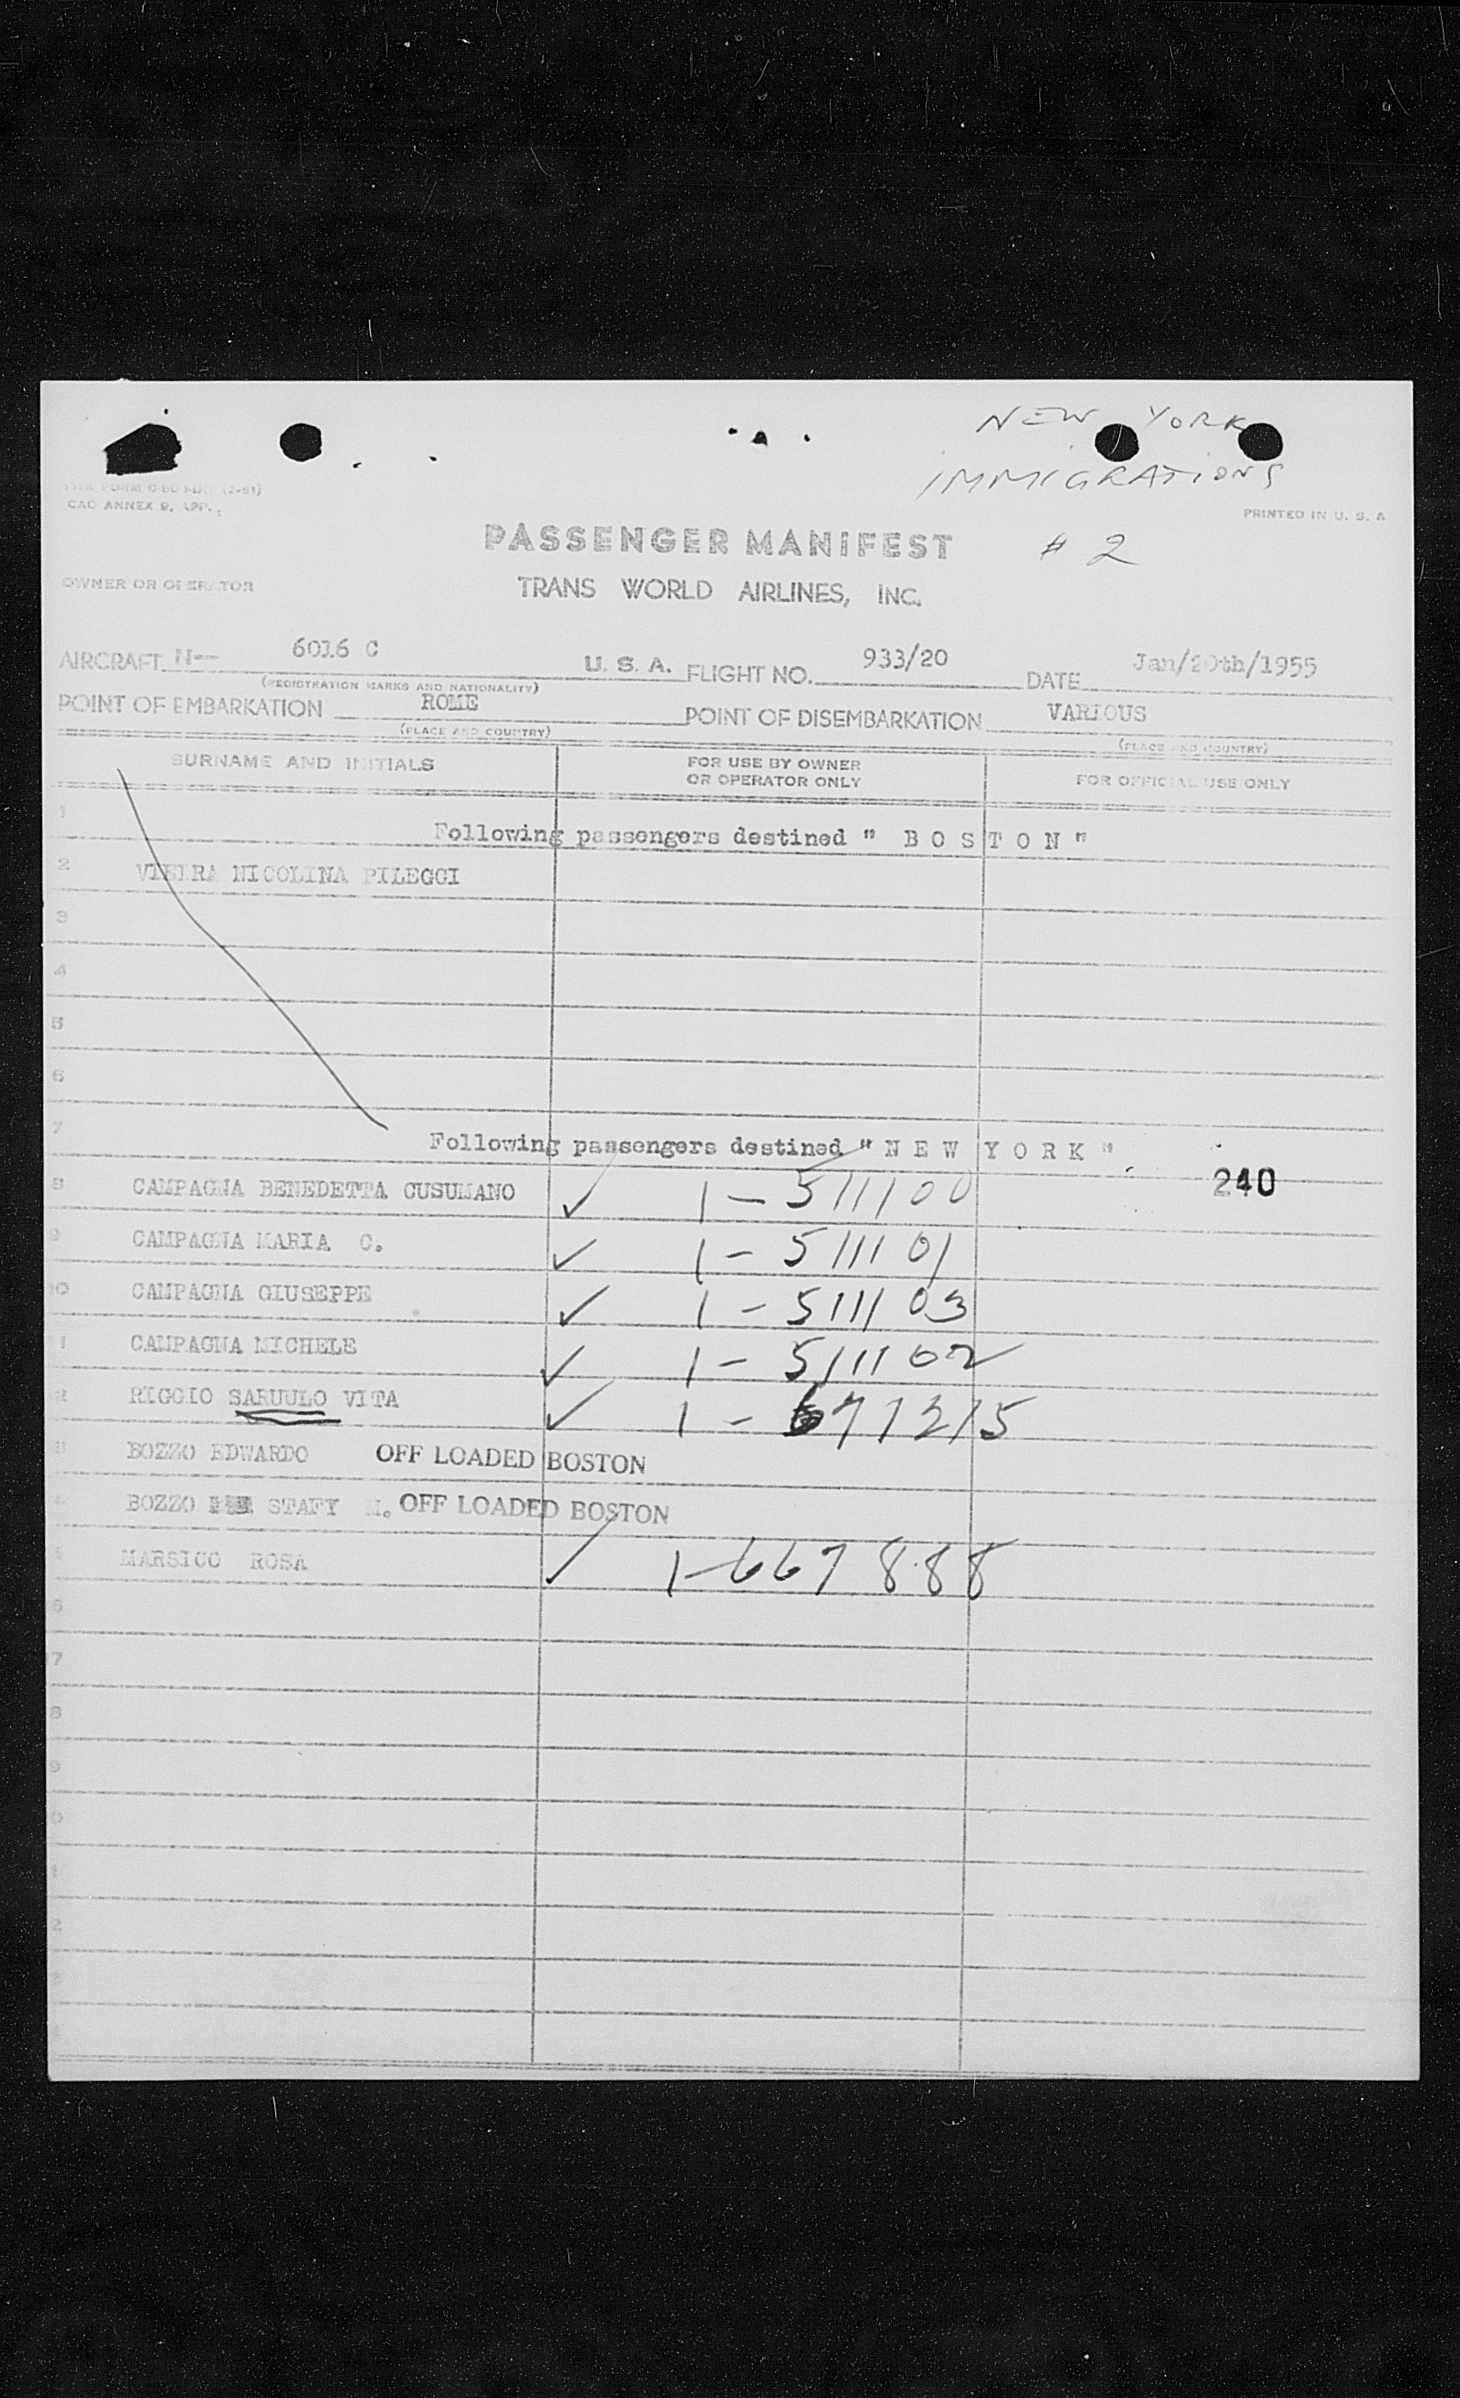 NEW YORK
IMMIGRATIONS
CAO ANNEX 9, APP.
PRINTED IN U. S. A
PASSENGER MANIFEST # 2
OWNER OR OPERATOR
TRANS WORLD AIRLINES, INC.
AIRCRAFT N-- 6016 C U. S. A. FLIGHT NO. 933/20 DATE Jan/20th/1955
(REGISTRATION MARKS AND NATIONALITY)
POINT OF EMBARKATION ROME POINT OF DISEMBARKATION VARIOUS
(PLACE AND COUNTRY) (PLACE AND COUNTRY)
SURNAME AND INITIALS FOR USE BY OWNER OR OPERATOR ONLY FOR OFFICIAL USE ONLY
1
Following passengers destined " B O S T O N "
2 NICOLINA PILEGGI
3
4
5
6
7
Following passengers destined " N E W Y O R K "
8 CAMPAGNA BENEDETTA CUSUMANO 1-511100 240
9 CAMPAGNA MARIA C. 1-511101
10 CAMPAGNA GIUSEPPE 1-511103
1 CAMPAGNA MICHELE 1-511102
2 RIGGIO SARUULO VITA 1-671215
3 BOZZO EDWARDO OFF LOADED BOSTON
4 BOZZO STAFY M. OFF LOADED BOSTON
5 MARSICO ROSA 1-667888
6
7
8
9
0
1
2